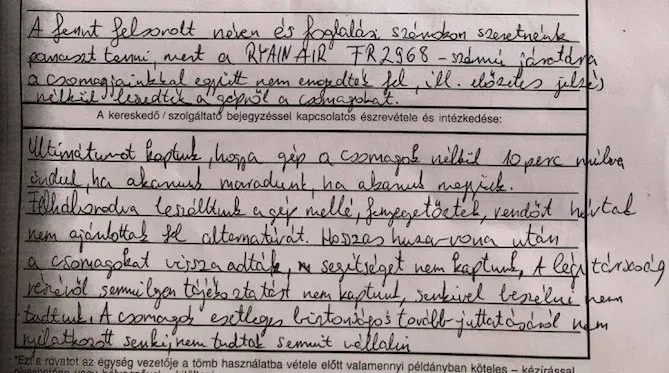 A fennt felsorolt néven és foglalási számokon szeretnénk
panaszt tenni, mert a RYAINAIR FR2968-számú járatára
a csomagjainkkal együtt nem engedtek fel, ill. előzetes jelzés
nélkül leszedték a gépről a csomagokat.
A kereskedő / szolgáltató bejegyzéssel kapcsolatos észrevétele és intézkedése:
Ultimátumot kaptunk, hogy a gép a csomagok nélkül 10 perc múlva
indul, ha akarunk maradunk, ha akarunk megyünk.
Felháborodva leszálltunk a gép mellé, fenyegetőztek, rendőrt hívtak
nem ajánlottak fel alternatívát. Hosszas huza-vona után
a csomagokat vissza adták, segítséget nem kaptunk, A légi társaság
részéről semmilyen tájékoztatást nem kaptunk, senkivel beszélni nem
tudtunk. A csomagok esetleges biztonságos tovább-juttatásáról nem
nyilatkozott senki, nem tudtak semmit vállalni
"Ezt a rovatot az egység vezetője a tömb használatba vétele előtt valamennyi példányban köteles – kézírással